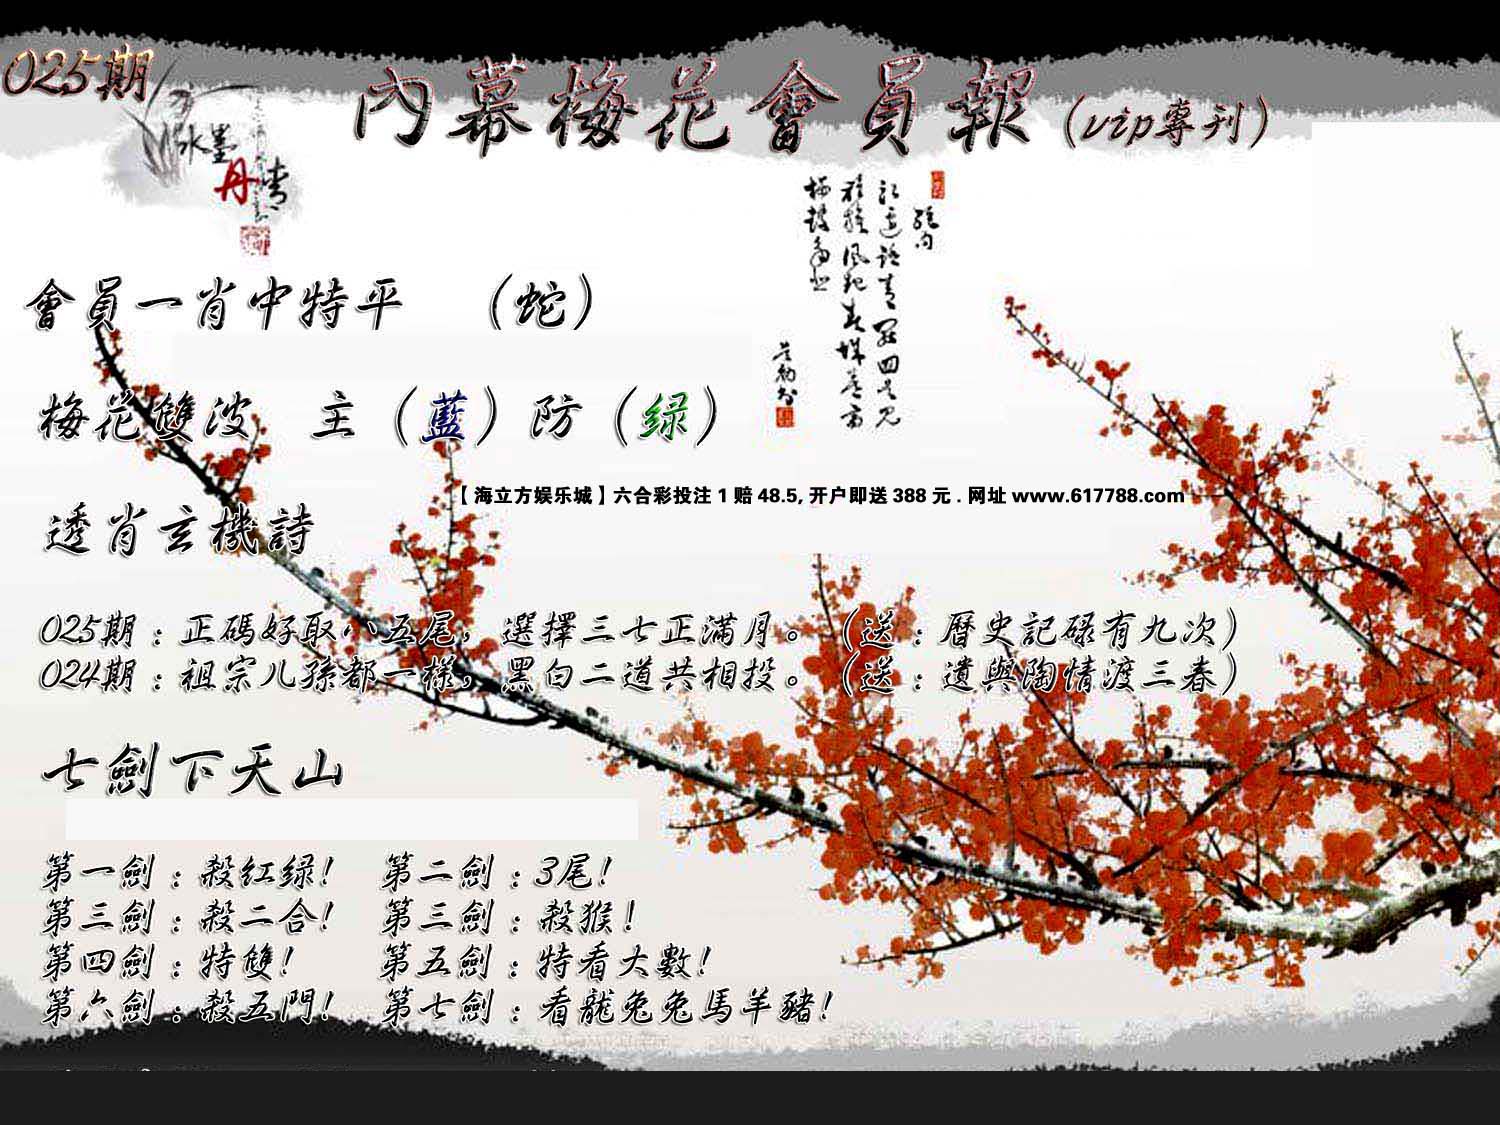 025期
內幕梅花會員報(vip專刊)
水墨
丹青
絕句
會員一肖中特平 (蛇)
梅花雙波 主(藍)防(绿)
【海立方娱乐城】六合彩投注1赔48.5,开户即送388元.网址www.617788.com
透肖玄機詩
025期:正碼好取八五尾,選擇三七正滿月。(送:曆史記碌有九次)
024期:祖宗儿孫都一樣,黑白二道共相投。(送:遺與陶情渡三春)
七劍下天山
第一劍:殺紅绿! 第二劍:3尾!
第三劍:殺二合! 第三劍:殺猴!
第四劍:特雙! 第五劍:特看大數!
第六劍:殺五門! 第七劍:看龍兔兔馬羊豬!